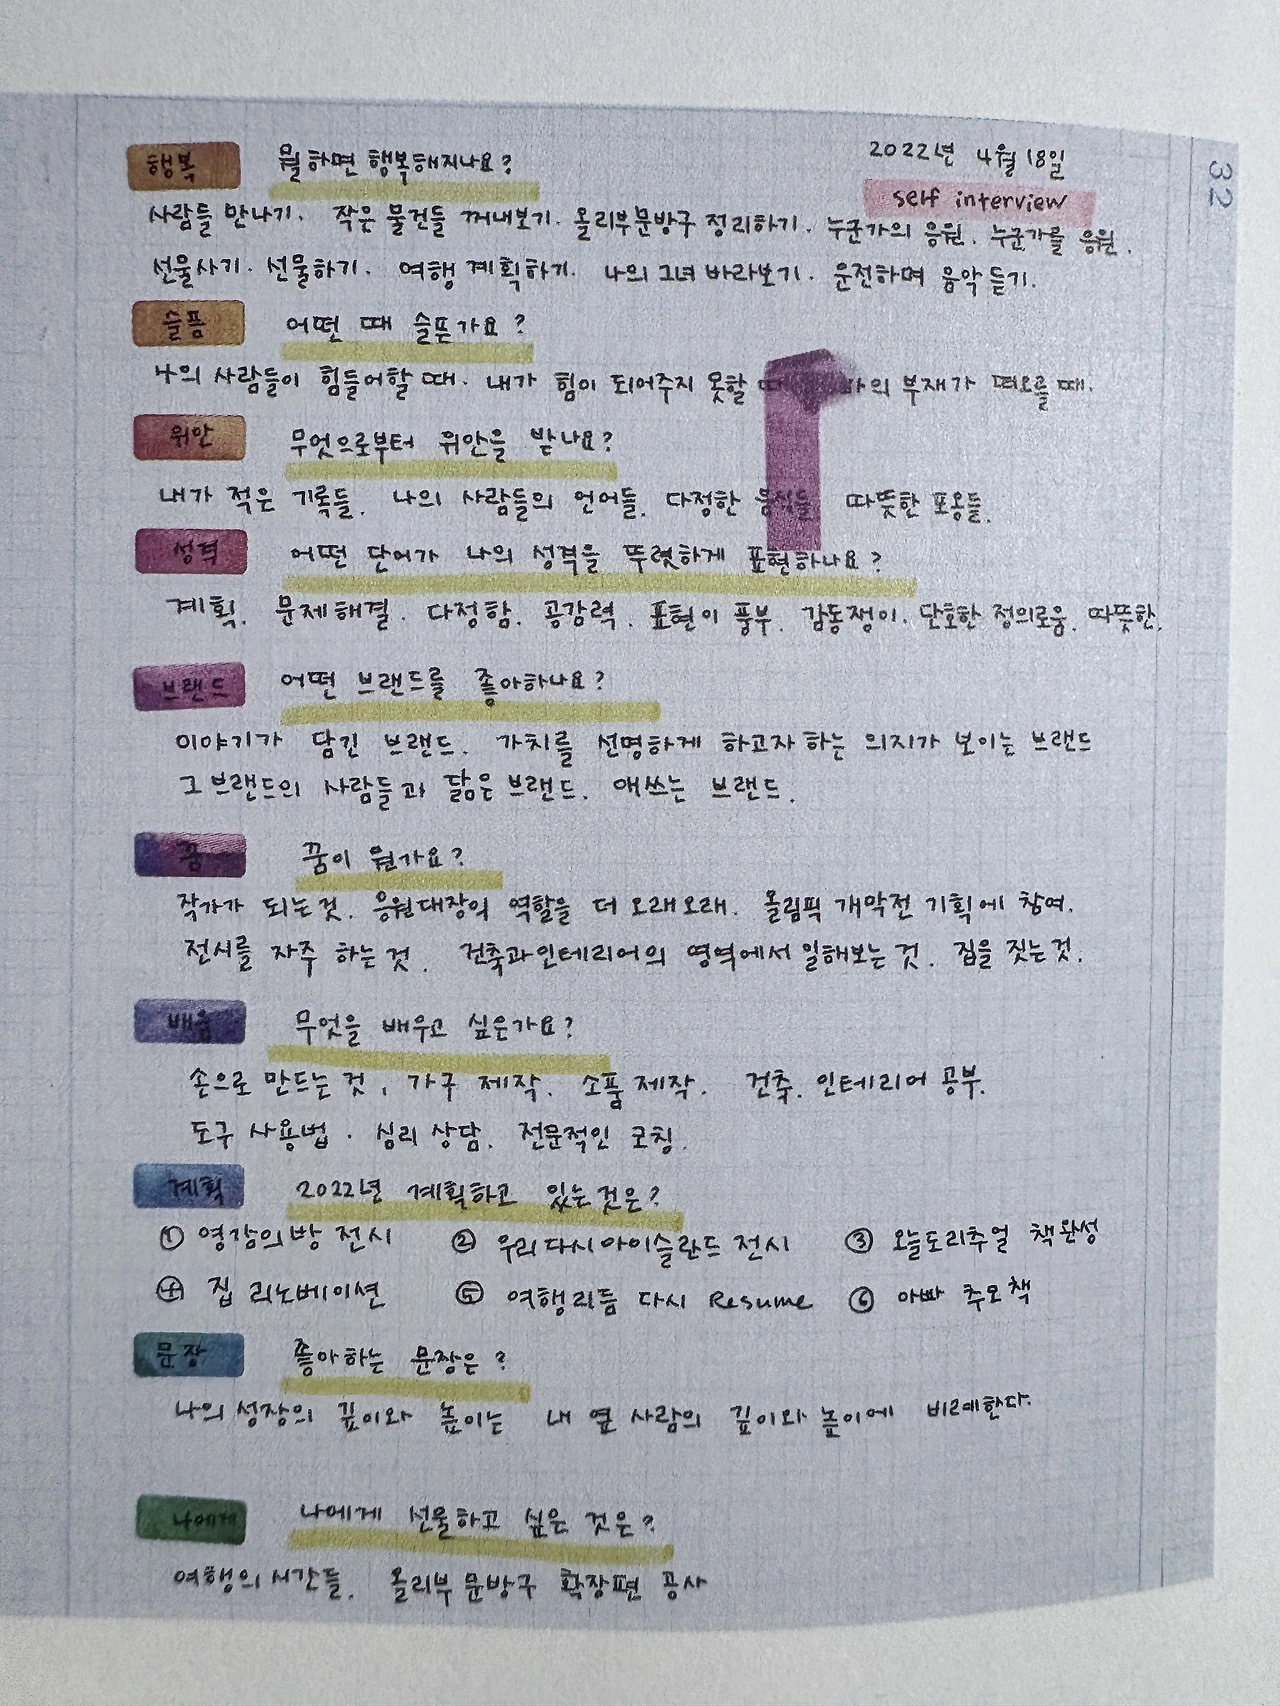 32
2022년 4월 18일
self interview
행복 뭘하면 행복해지나요?
사람들 만나기. 작은 물건들 꺼내보기. 올리부문방구 정리하기. 누군가의 응원. 누군가를 응원.
선물사기. 선물하기. 여행 계획하기. 나의 그녀 바라보기. 운전하며 음악듣기.
슬픔 어떤 때 슬픈가요?
나의 사람들이 힘들어할 때. 내가 힘이 되어주지 못할 의 부재가 떠오를 때.
위안 무엇으로부터 위안을 받나요?
내가 적은 기록들. 나의 사람들의 언어들. 다정한 음식들 따뜻한 포옹들.
성격 어떤 단어가 나의 성격을 뚜렷하게 표현하나요?
계획. 문제해결. 다정함. 공감력. 표현이 풍부. 감동쟁이. 단호한 정의로움. 따뜻한.
브랜드 어떤 브랜드를 좋아하나요?
이야기가 담긴 브랜드. 가치를 선명하게 하고자 하는 의지가 보이는 브랜드
그 브랜드의 사람들과 닮은 브랜드. 애쓰는 브랜드.
꿈 꿈이 뭔가요?
작가가 되는것. 응원대장의 역할을 더 오래오래. 올림픽 개막전 기획에 참여.
전시를 자주 하는 것. 건축과인테리어의 영역에서 일해보는 것. 집을 짓는것.
배움 무엇을 배우고 싶은가요?
손으로 만드는 것, 가구 제작. 소품 제작. 건축. 인테리어 공부.
도구 사용법. 심리 상담. 전문적인 코칭.
계획 2022년 계획하고 있는것은?
① 영감의방 전시 ② 우리다시아이슬란드 전시 ③ 오늘도리추얼 책완성
④ 집 리노베이션 ⑤ 여행리듬 다시 Resume ⑥ 아빠 추모책
문장 좋아하는 문장은?
나의 성장의 깊이와 높이는 내 옆 사람의 깊이와 높이에 비례한다.
나에게 나에게 선물하고 싶은 것은?
여행의 시간들. 올리부 문방구 확장편 공사